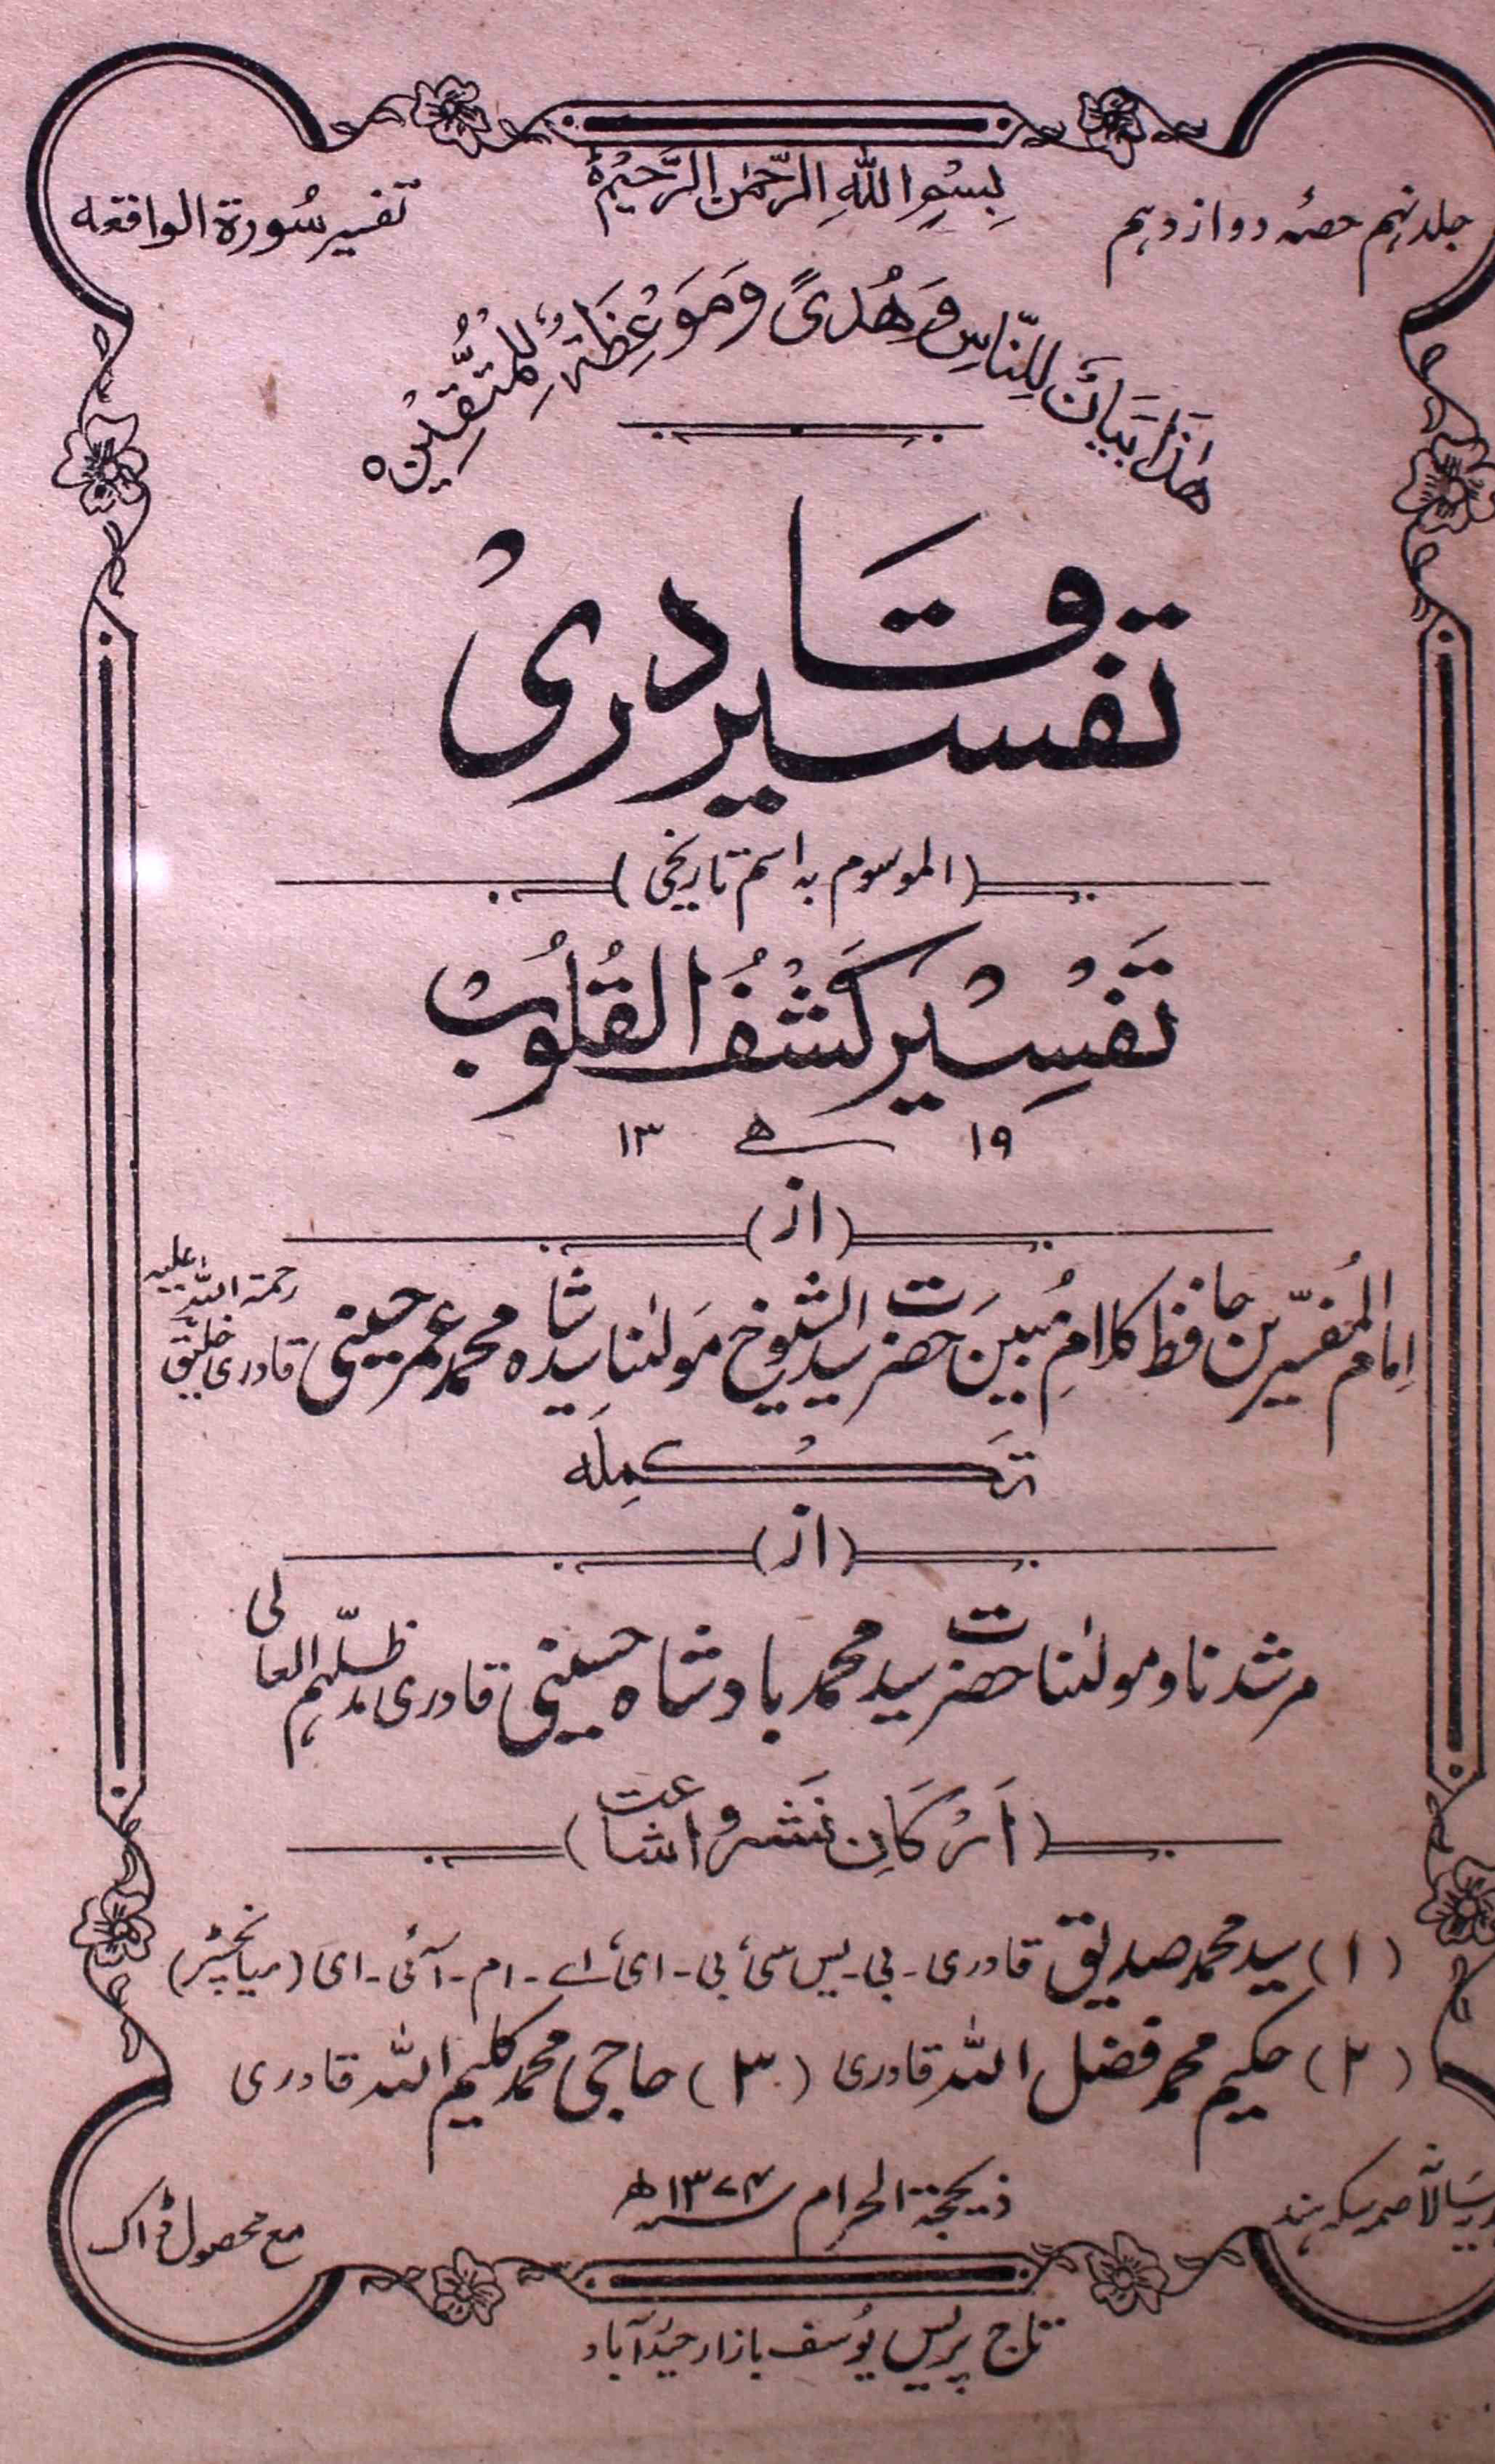 جلد نہم حصۂ دوازدہم
بِسْمِ اللّٰهِ الرَّحْمٰنِ الرَّحِيْمِ
تفسیر سُورۃ الواقعہ
هٰذَا بَيَانٌ لِّلنَّاسِ وَهُدًى وَّمَوْعِظَةٌ لِّلْمُتَّقِيْنَ ہ
تفسیر قادری
(الموسوم بہ اسم تاریخی)
تَفْسِیْر کَشْفُ الْقُلُوْبْ
۱۹ ھ ۱۳
(از)
اِمام المُفسّرین حافظ کلامِ مُبین حضرت سید الشیوخ مَولٰنا سید شاہ محمد عمر حسینی قادری خلیق رحمۃ اللہ علیہ
تَکْمِلَه
(از)
مرشدنا و مولٰنا حضرت سید محمد بادشاہ حسینی قادری مدظلہم العالی
(اَرْکَانِ نَشر و اشاعت)
(۱) سید محمد صدیق قادری - بی - یس سی، بی - ای، اے - ام - آئی - ای (میانچسٹر)
(۲) حکیم محمد فضل اللہ قادری (۳) حاجی محمد کلیم اللہ قادری
ذیحجۃ الحرام ۱۳۷۴ھ
مع محصول ڈاک
تاج پریس یُوسف بازار حیدرآباد